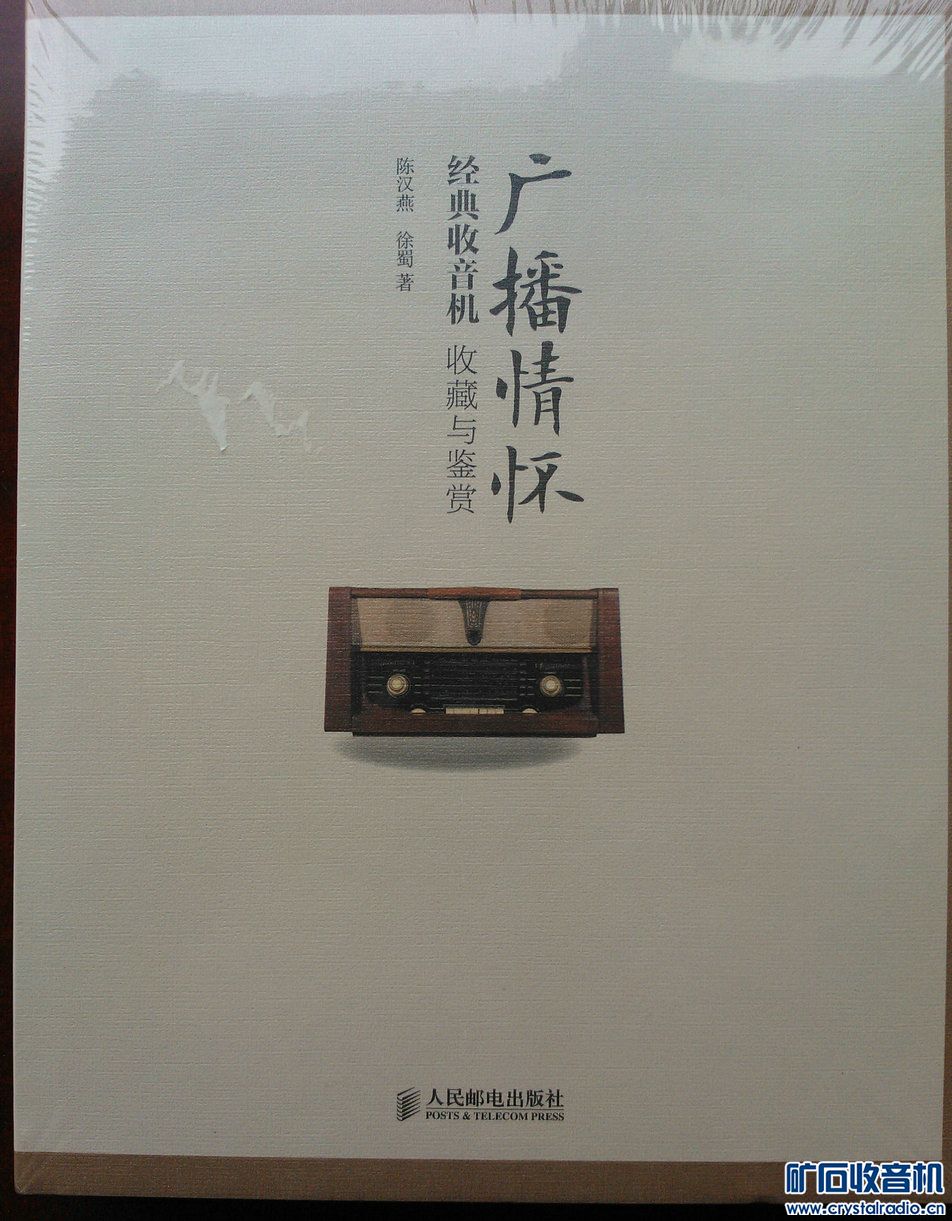 广播情怀
经典收音机 收藏与鉴赏
陈汉燕 徐蜀 著
人民邮电出版社
POSTS & TELECOM PRESS
矿石收音机
www.crystalradio.cn